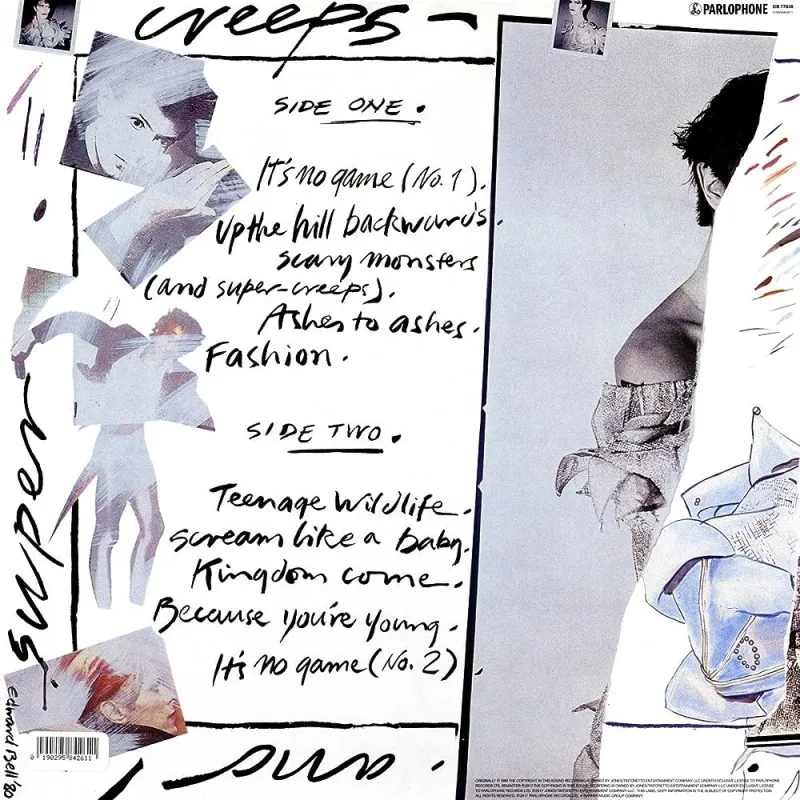 creeps -
PARLOPHONE
SIDE ONE.
It's no game (No. 1).
Up the hill backwards.
scary monsters
(and super-creeps).
Ashes to ashes.
Fashion.
SIDE TWO.
Teenage Wildlife.
scream like a baby.
Kingdom come.
Because you're young.
It's no game (No. 2)
super
Edward Bell '80
0 190295 842611
and